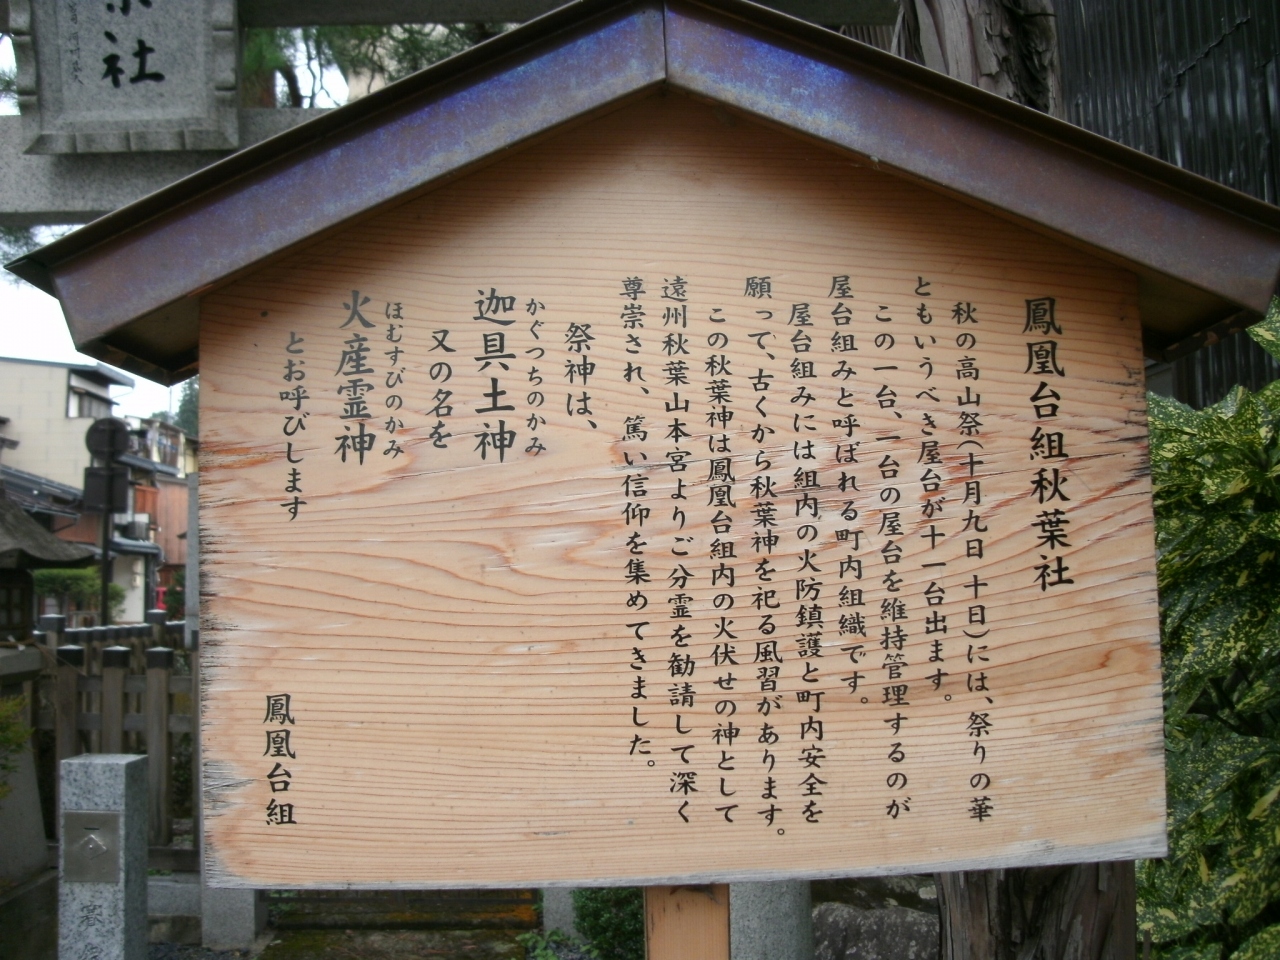 鳳凰台組秋葉社
秋の高山祭(十月九日 十日)には、祭りの華
ともいうべき屋台が十一台出ます。
この一台、一台の屋台を維持管理するのが
屋台組みと呼ばれる町内組織です。
屋台組みには組内の火防鎮護と町内安全を
願って、古くから秋葉神を祀る風習があります。
この秋葉神は鳳凰台組内の火伏せの神として
遠州秋葉山本宮よりご分霊を勧請して深く
尊崇され、篤い信仰を集めてきました。
祭神は、
かぐつちのかみ
迦具土神
又の名を
ほむすびのかみ
火産霊神
とお呼びします
鳳凰台組
社